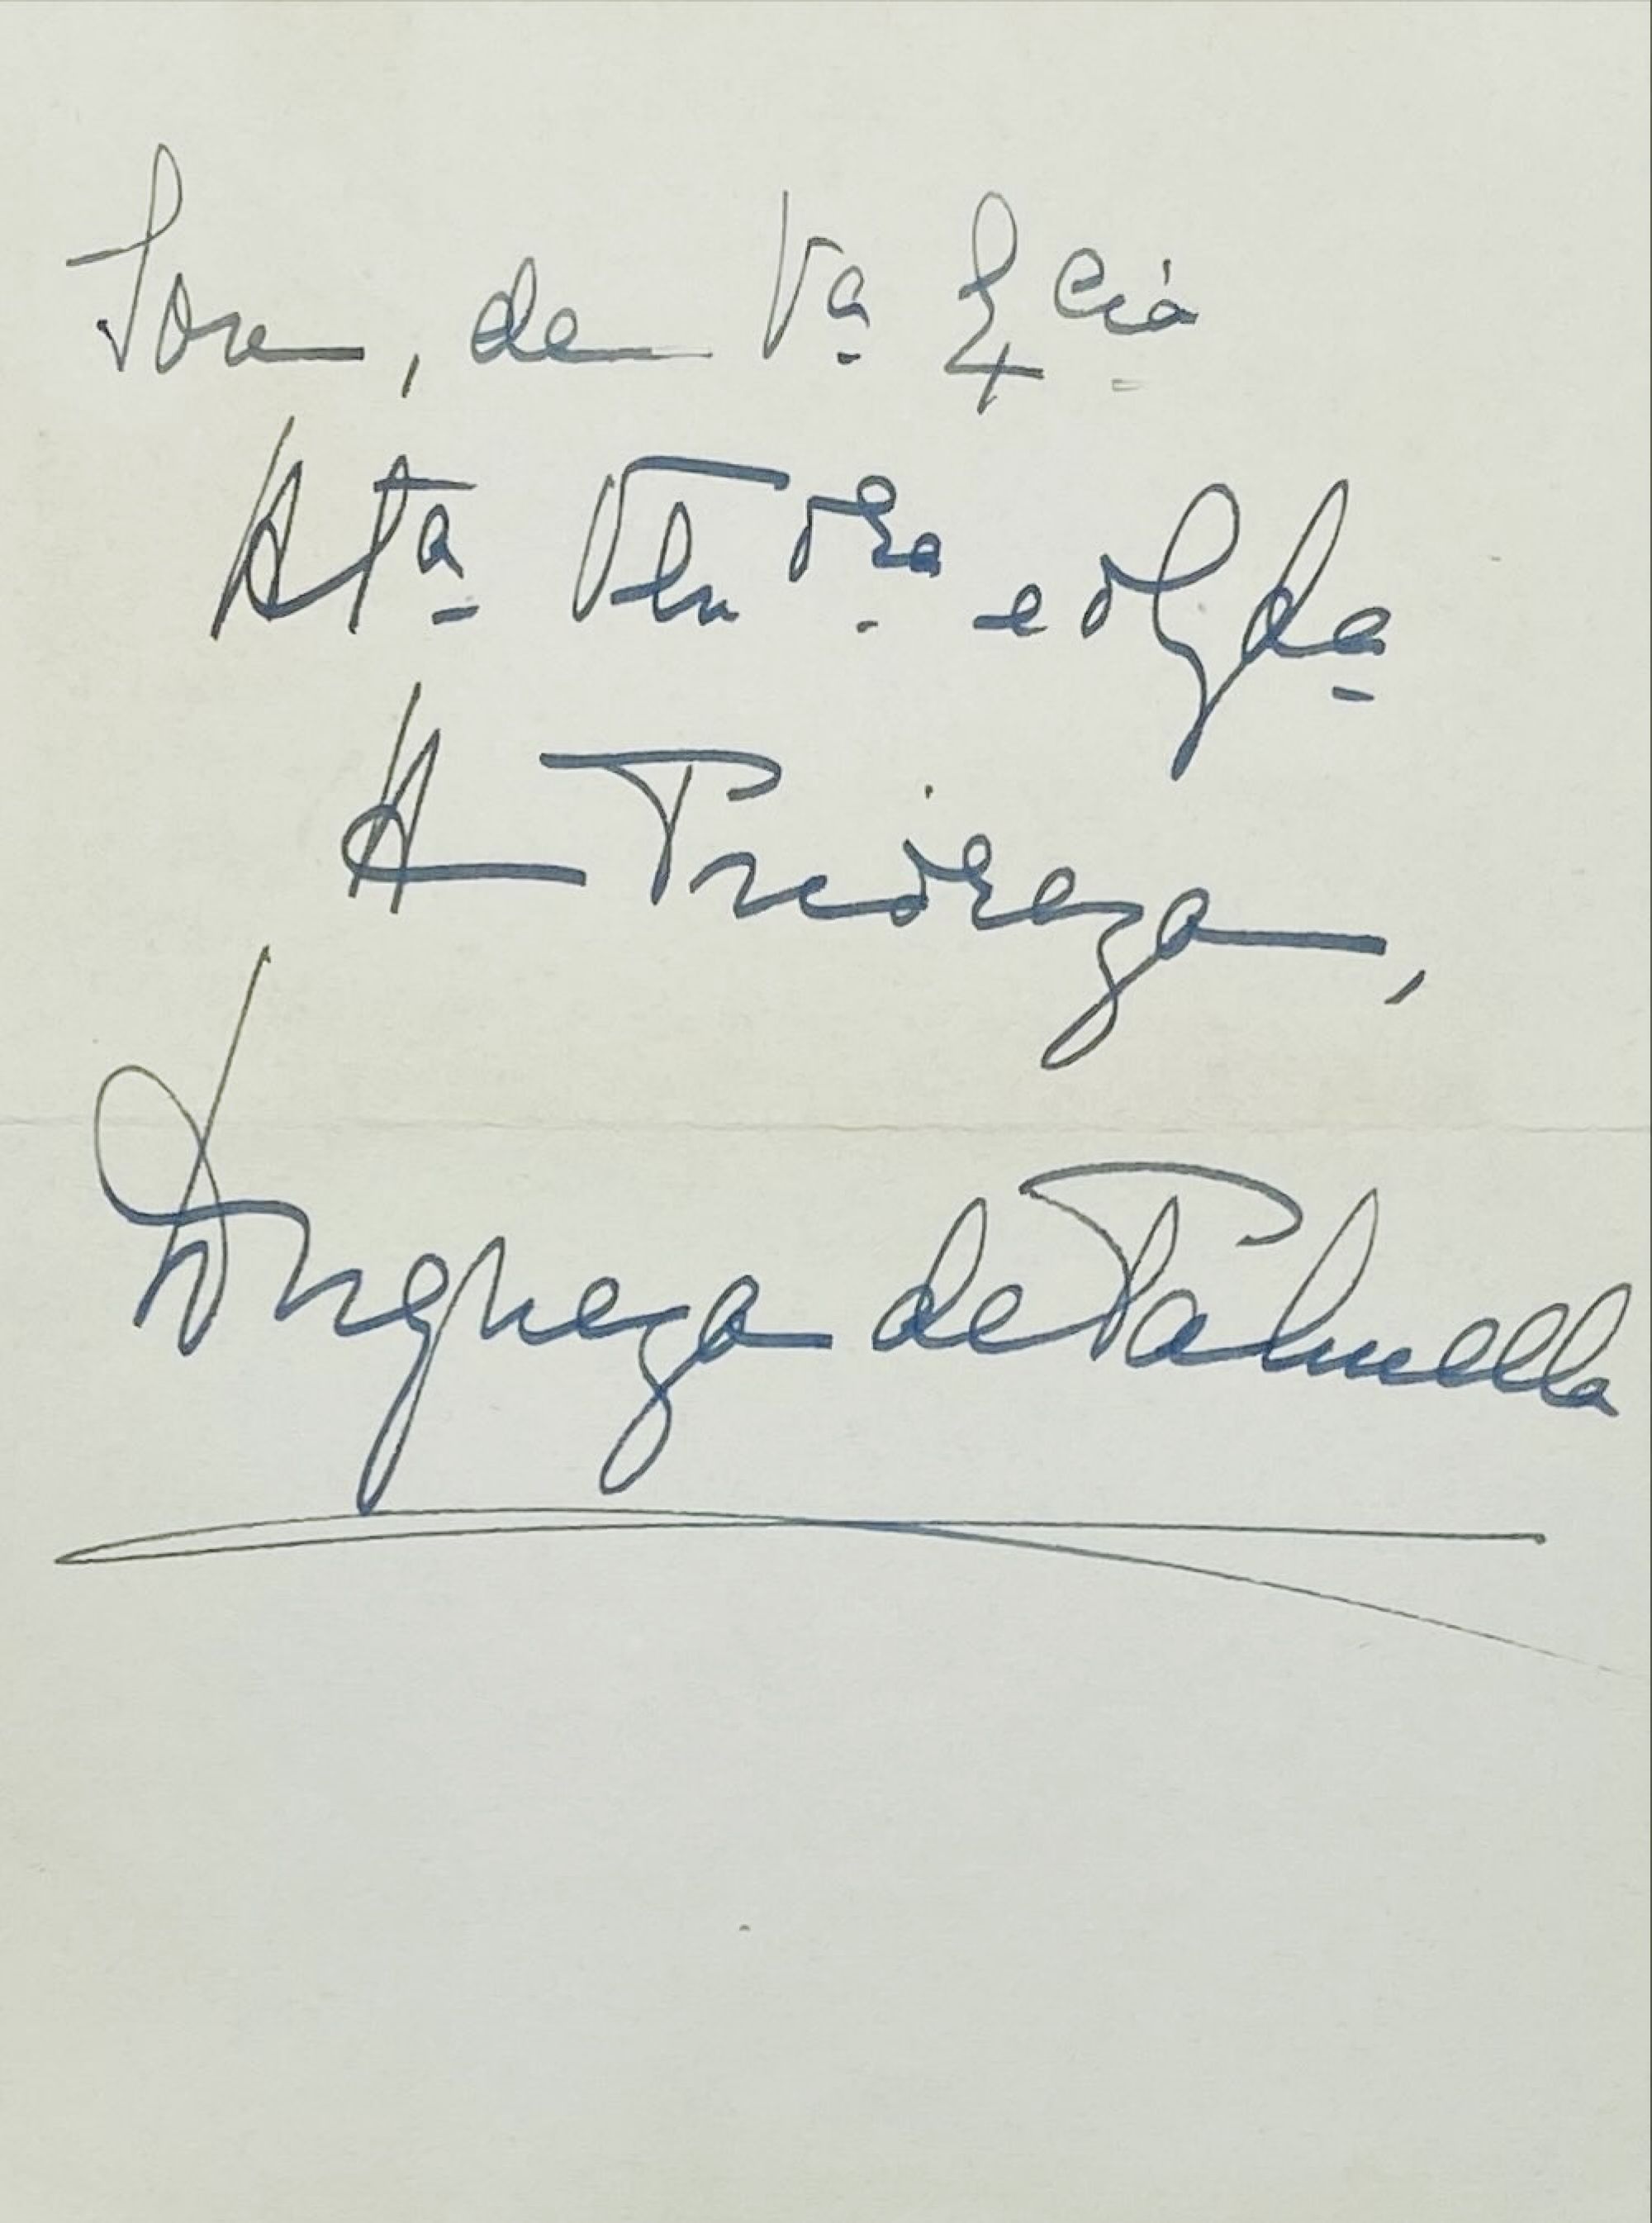 Sou, de Vª Excia
Atª Venora e obgda
A Prioreza,
Duqueza de Palmella